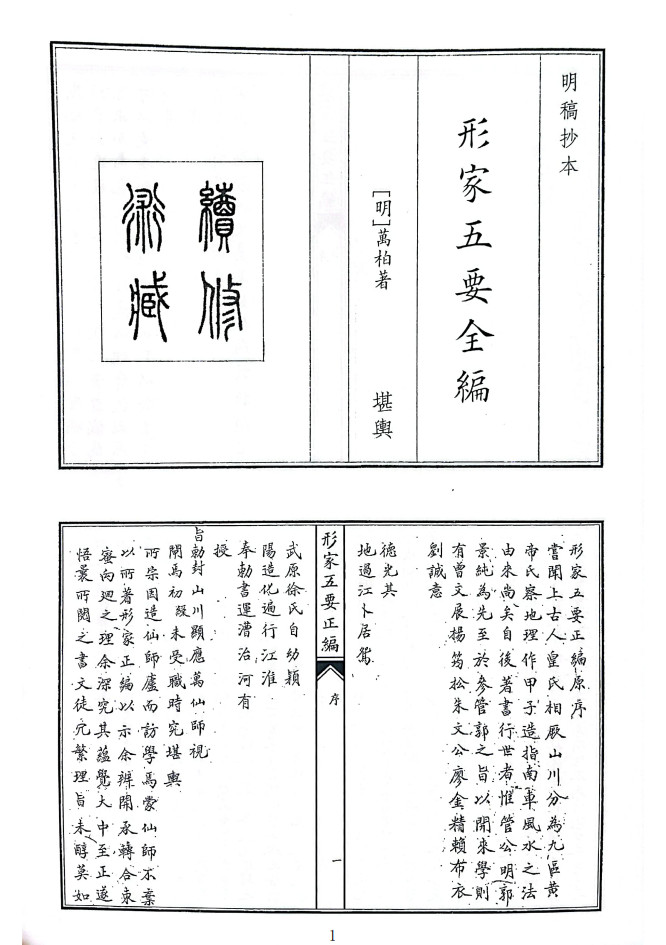 明稿抄本
形家五要全編
［明］萬柏著
堪輿
續修
求藏
形家五要正編原序
嘗聞上古人皇氏相厥山川分為九區黄
帝氏察地理作甲子造指南車風水之法
由來尚矣自後著書行世者惟管公明郭
景純為先至於參管郭之旨以開來學則
有曾文展楊筠松朱文公廖金精賴布衣
劉誠意
德光其
地過江卜居駕
形家五要正編
序
一
武原徐氏自幼穎
陽造化遍行江淮
奉勅書運漕治河有
授
旨勅封山川顯應萬仙師視
閑馬初級未受職時究堪輿
所宗因造仙師廬而訪學焉蒙仙師不棄
以所著形家正編以示余辨開承轉合束
蜜向廻之理余深究其蘊覺大中至正遂
悟曩所閱之書文徒冗繁理旨未醇莫如
1